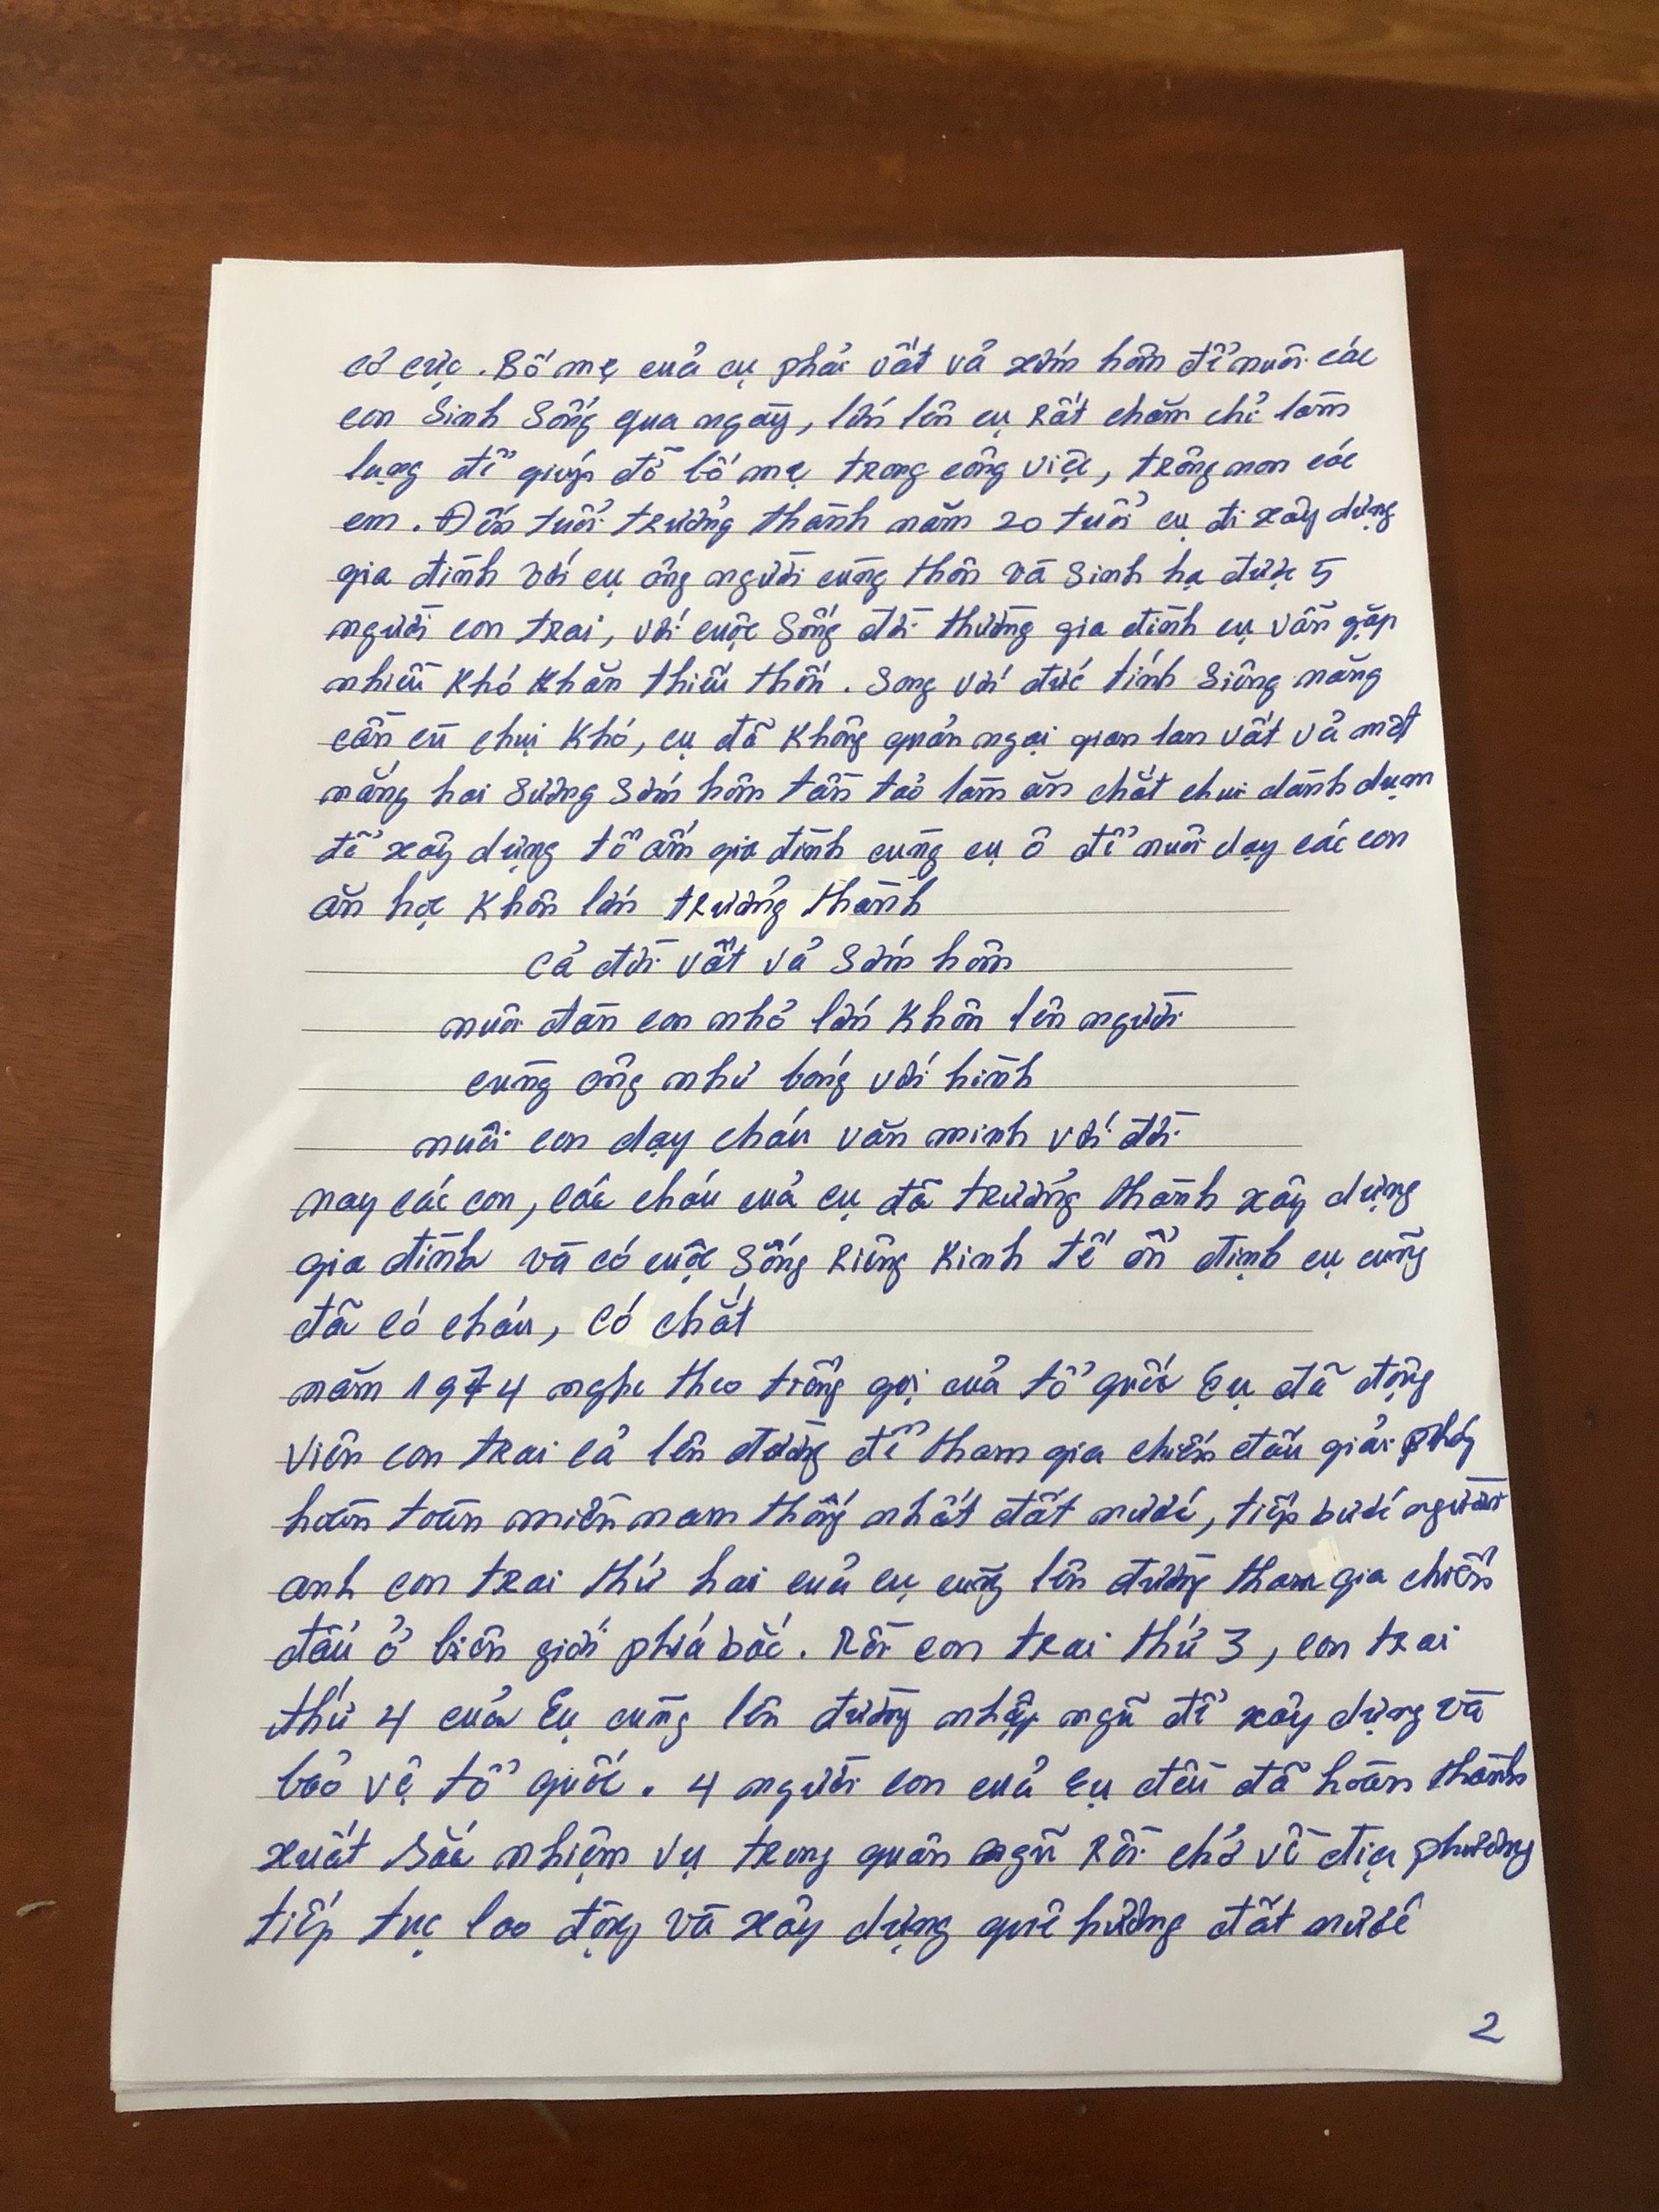 cơ cực. Bố mẹ của cụ phải vất vả xớm hôm để nuôi các
con Sinh Sống qua ngày, lớn lên cụ Rất chăm chỉ làm
lụng để giúp đỡ bố mẹ trong công việc, trông non các
em. Đến tuổi trưởng thành năm 20 tuổi cụ đi xây dựng
gia đình với cụ ông người cùng thôn và Sinh hạ được 5
người con trai, với cuộc Sống đời thường gia đình cụ vẫn gặp
nhiều khó khăn thiếu thốn. Song với đức tính Siêng năng
cần cù chịu khó, cụ đã không quản ngại gian lan vất vả một
nắng hai Sương Sớm hôm tần tảo làm ăn chắt chiu dành dụm
để xây dựng tổ ấm gia đình cùng cụ ô để nuôi dạy các con
ăn học khôn lớn trưởng thành
Cả đời vất vả Sớm hôm
nuôi đàn con nhỏ lớn khôn lên người
cùng ông như bóng với hình
nuôi con dạy cháu văn minh với đời
nay các con, các cháu của cụ đã trưởng thành xây dựng
gia đình và có cuộc Sống Riêng kinh tế ổn định cụ cũng
đã có cháu, có chắt
năm 1974 nghe theo tiếng gọi của tổ quốc Cụ đã động
viên con trai cả lên đường để tham gia chiến đấu giải phóg
hoàn toàn miền nam thống nhất đất nước, tiếp bước người
anh con trai thứ hai của cụ cũng lên đường tham gia chiến
đấu ở biên giới phía bắc. Rồi con trai thứ 3, con trai
thứ 4 của Cụ cũng lên đường nhập ngũ để xây dựng và
bảo vệ tổ quốc. 4 người con của Cụ đều đã hoàn thành
xuất Sắc nhiệm vụ trong quân ngũ Rồi chở về địa phương
tiếp tục lao động và xây dựng quê hương đất nước
2